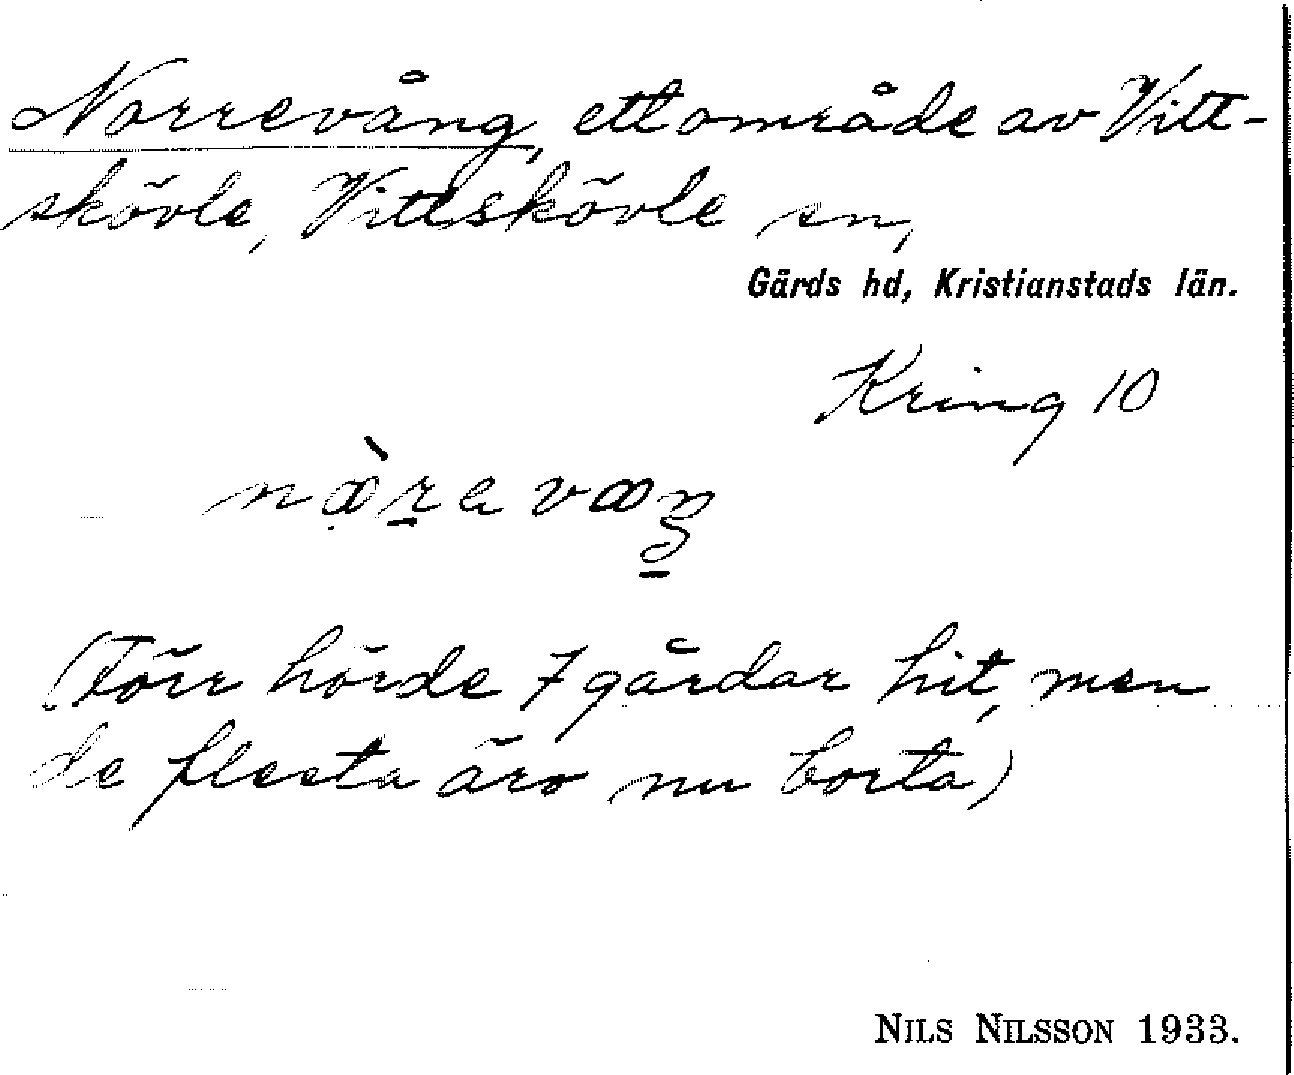 Norrevång, ett område av Vitt-
skövle, Vittskövle sn,
Gärds hd, Kristianstads län.
Kring 10
(Förr hörde 7 gårdar hit, men
de flesta äro nu borta)
NILS NILSSON 1933.